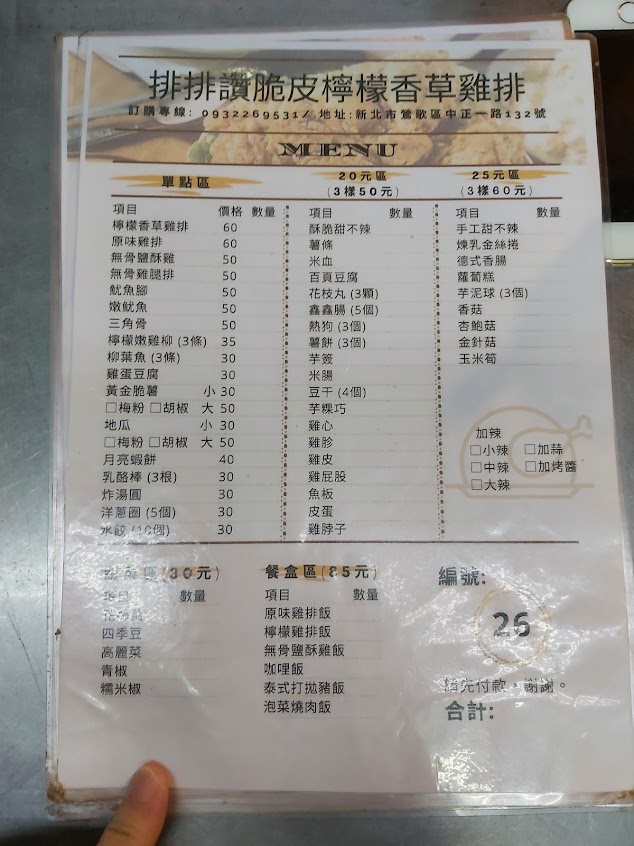 排排讚脆皮檸檬香草雞排
訂購專線: 0932269531/ 地址:新北市鶯歌區中正一路132號
MENU
單點區
項目 價格 數量
檸檬香草雞排 60
原味雞排 60
無骨鹽酥雞 50
無骨雞腿排 50
魷魚腳 50
嫩魷魚 50
三角骨 50
檸檬嫩雞柳 (3條) 35
柳葉魚 (3條) 30
雞蛋豆腐 30
黃金脆薯 小 30
□梅粉 □胡椒 大 50
地瓜 小 30
□梅粉 □胡椒 大 50
月亮蝦餅 40
乳酪棒 (3根) 30
炸湯圓 30
洋蔥圈 (5個) 30
水餃 (10個) 30
20元區
(3樣50元)
項目 數量
酥脆甜不辣
薯條
米血
百頁豆腐
花枝丸 (3顆)
鑫鑫腸 (5個)
熱狗 (3個)
薯餅 (3個)
芋簽
米腸
豆干 (4個)
芋粿巧
雞心
雞胗
雞皮
雞屁股
魚板
皮蛋
雞脖子
25元區
(3樣60元)
項目 數量
手工甜不辣
煉乳金絲捲
德式香腸
蘿蔔糕
芋泥球 (3個)
香菇
杏鮑菇
金針菇
玉米筍
加辣
□小辣 □加蒜
□中辣 □加烤醬
□大辣
區(30元)
項目 數量
四季豆
高麗菜
青椒
糯米椒
餐盒區(85元)
項目 數量
原味雞排飯
檸檬雞排飯
無骨鹽酥雞飯
咖哩飯
泰式打拋豬飯
泡菜燒肉飯
編號:
26
請先付款，謝謝。
合計: